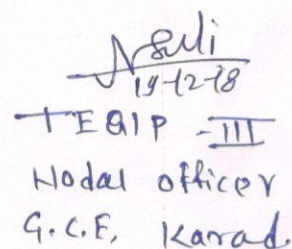 19-12-18
TEQIP - III
Nodal officer
G.C.E. Karad.